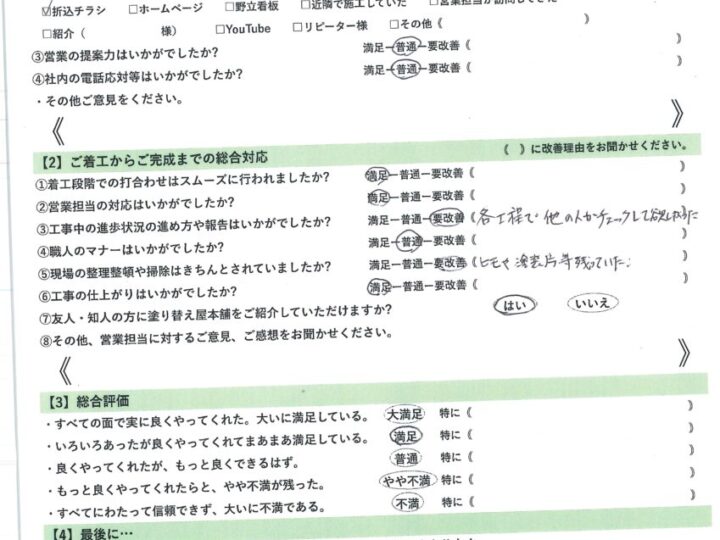 ☑折込チラシ □ホームページ □野立看板 □近隣で施工していた □営業担当が訪問してきた
□紹介（ 様） □YouTube □リピーター様 □その他《 》
③営業の提案力はいかがでしたか? 満足ー普通ー要改善《 》
④社内の電話応対等はいかがでしたか? 満足ー普通ー要改善《 》
・その他ご意見をください。
《 》
【2】ご着工からご完成までの総合対応 《 》に改善理由をお聞かせください。
①着工段階での打合わせはスムーズに行われましたか? 満足ー普通ー要改善《 》
②営業担当の対応はいかがでしたか? 満足ー普通ー要改善《 》
③工事中の進歩状況の進め方や報告はいかがでしたか? 満足ー普通ー要改善《 各工程で他の人がチェックして欲しかった
④職人のマナーはいかがでしたか? 満足ー普通ー要改善《 》
⑤現場の整理整頓や掃除はきちんとされていましたか? 満足ー普通ー要改善《 ヒモや塗装片等残っていた。 》
⑥工事の仕上がりはいかがでしたか? 満足ー普通ー要改善《 》
⑦友人・知人の方に塗り替え屋本舗をご紹介していただけますか? はい いいえ
⑧その他、営業担当に対するご意見、ご感想をお聞かせください。
《 》
【3】総合評価
・すべての面で実に良くやってくれた。大いに満足している。 大満足 特に《 》
・いろいろあったが良くやってくれてまあまあ満足している。 満足 特に《 》
・良くやってくれたが、もっと良くできるはず。 普通 特に《 》
・もっと良くやってくれたらと、やや不満が残った。 やや不満 特に《 》
・すべてにわたって信頼できず、大いに不満である。 不満 特に《 》
【4】最後に…